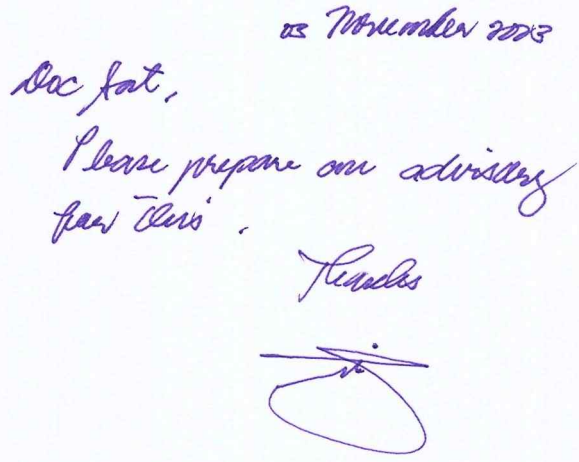 03 November 2023
Doc
Please prepare an advisory
for this.
Thanks